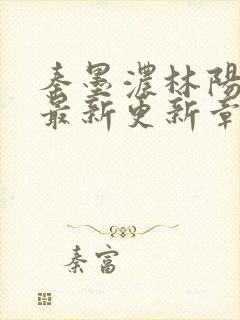 秦墨濃林陽
最新更新章
秦富